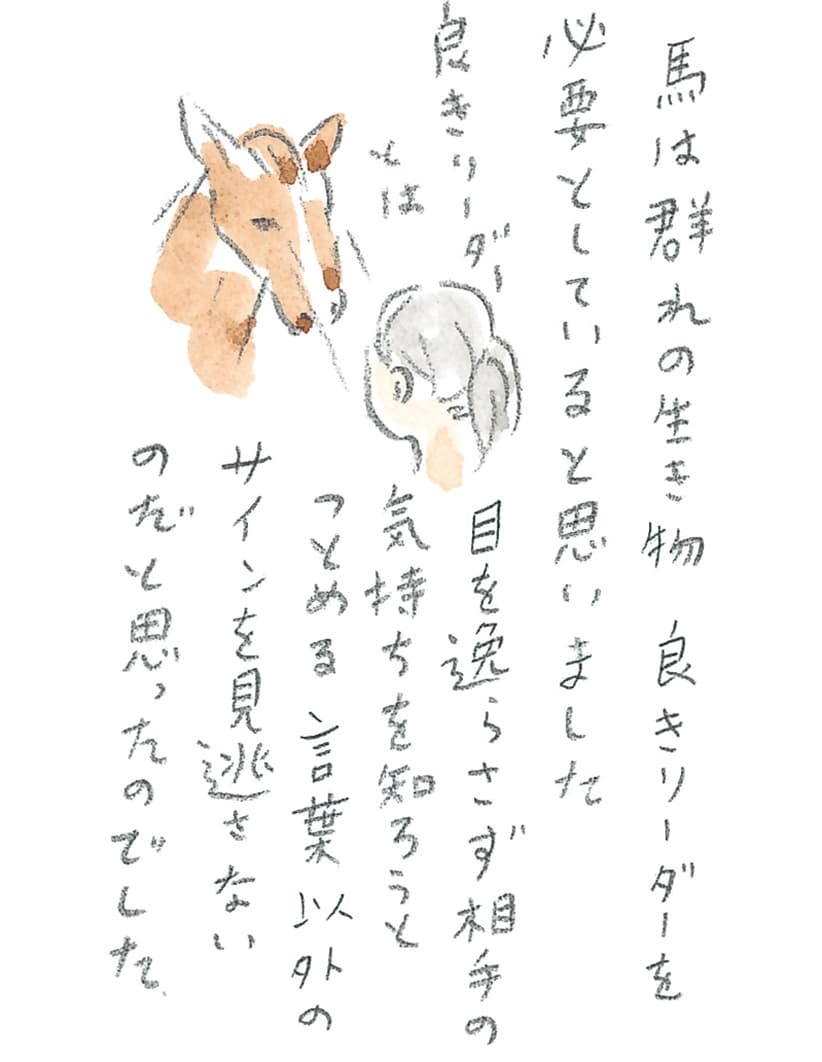 馬は群れの生き物 良きリーダーを
必要としていると思いました
良きリーダー
とは
目を逸らさず相手の
気持ちを知ろうと
つとめる 言葉以外の
サインを見逃さない
のだと思ったのでした